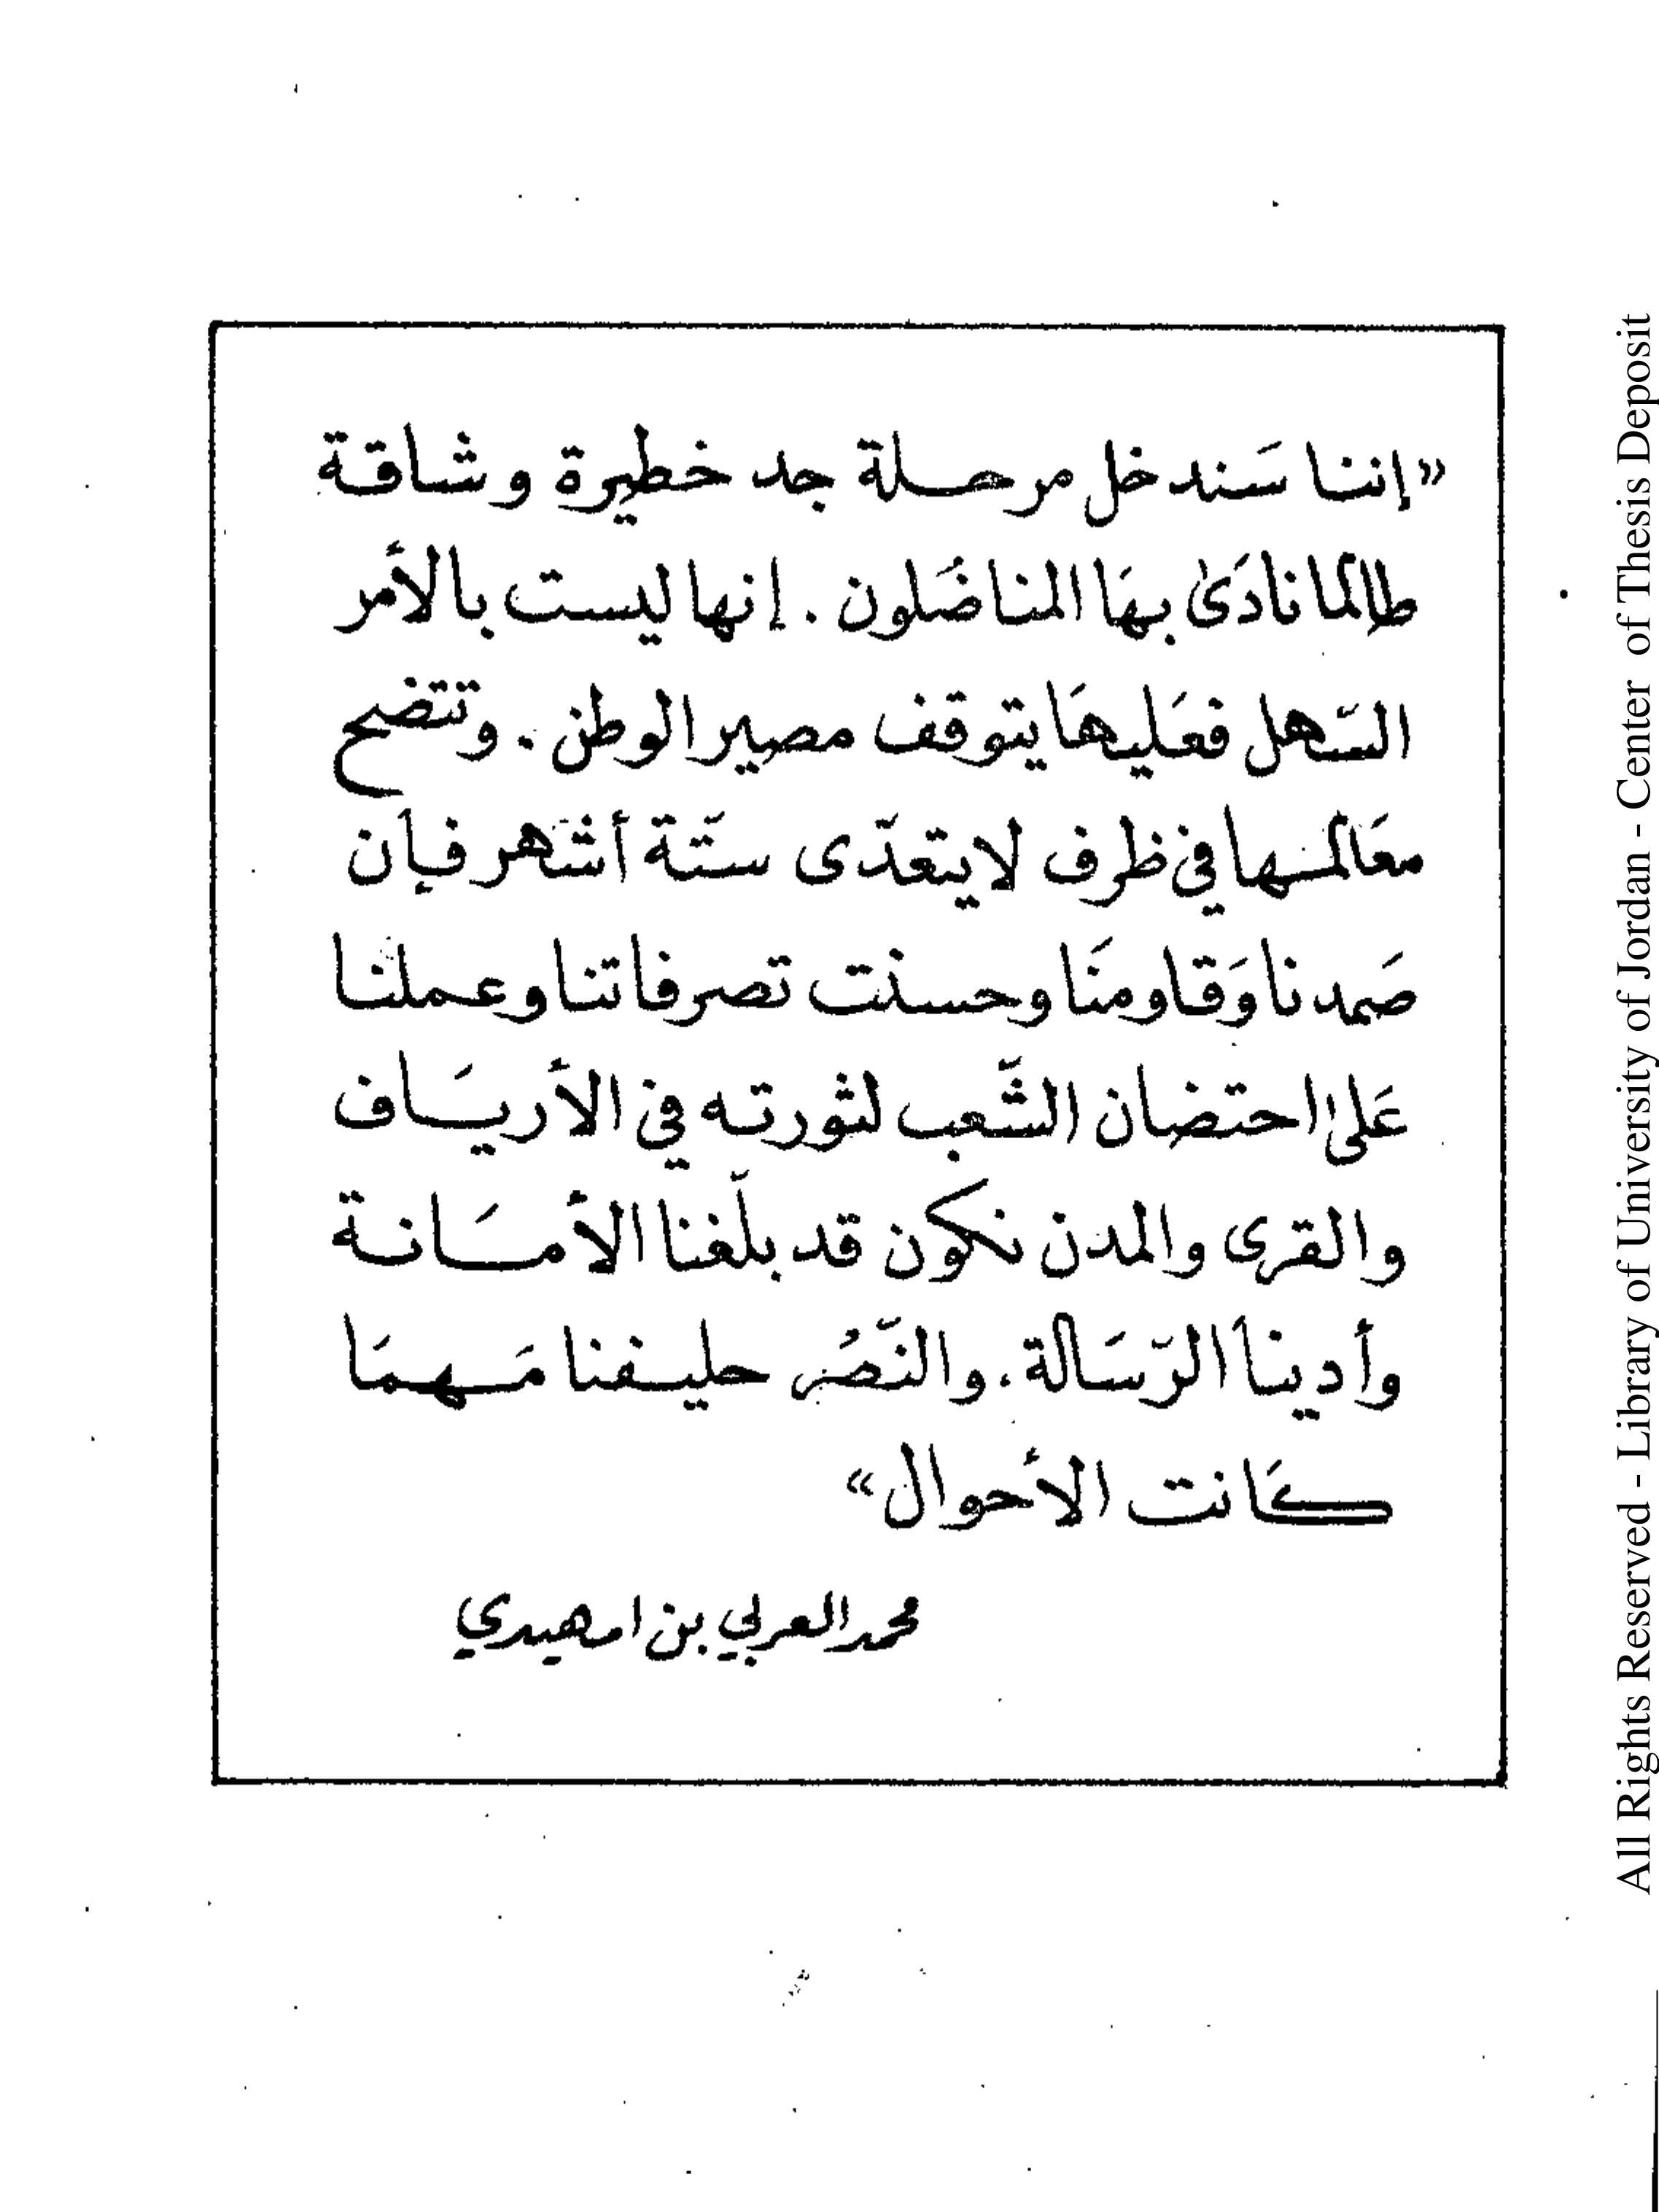 «إننا سَندخل مرحلة جد خطيرة وشاقة
طالما نادَىٰ بهَا المناضَلون . إنها ليست بالأمر
السّهل فعَليهَا يتوقف مصير الوطن . وتتضح
معَالمها في ظرف لا يتعدّى ستّة أشهر فإن
صَمدنا وَقاومنَا وحسنت تصرفاتنا وعملنا
عَلىٰ احتضان الشّعب لثورته في الأريَاف
والقرى والمدن نكون قد بلّغنا الأمَانة
وأدينَا الرّسَالة . والنّصُر حليفنا مَهمَا
كَانت الأحوال»
محمد العربي بن امهيدي
All Rights Reserved - Library of University of Jordan - Center of Thesis Deposit